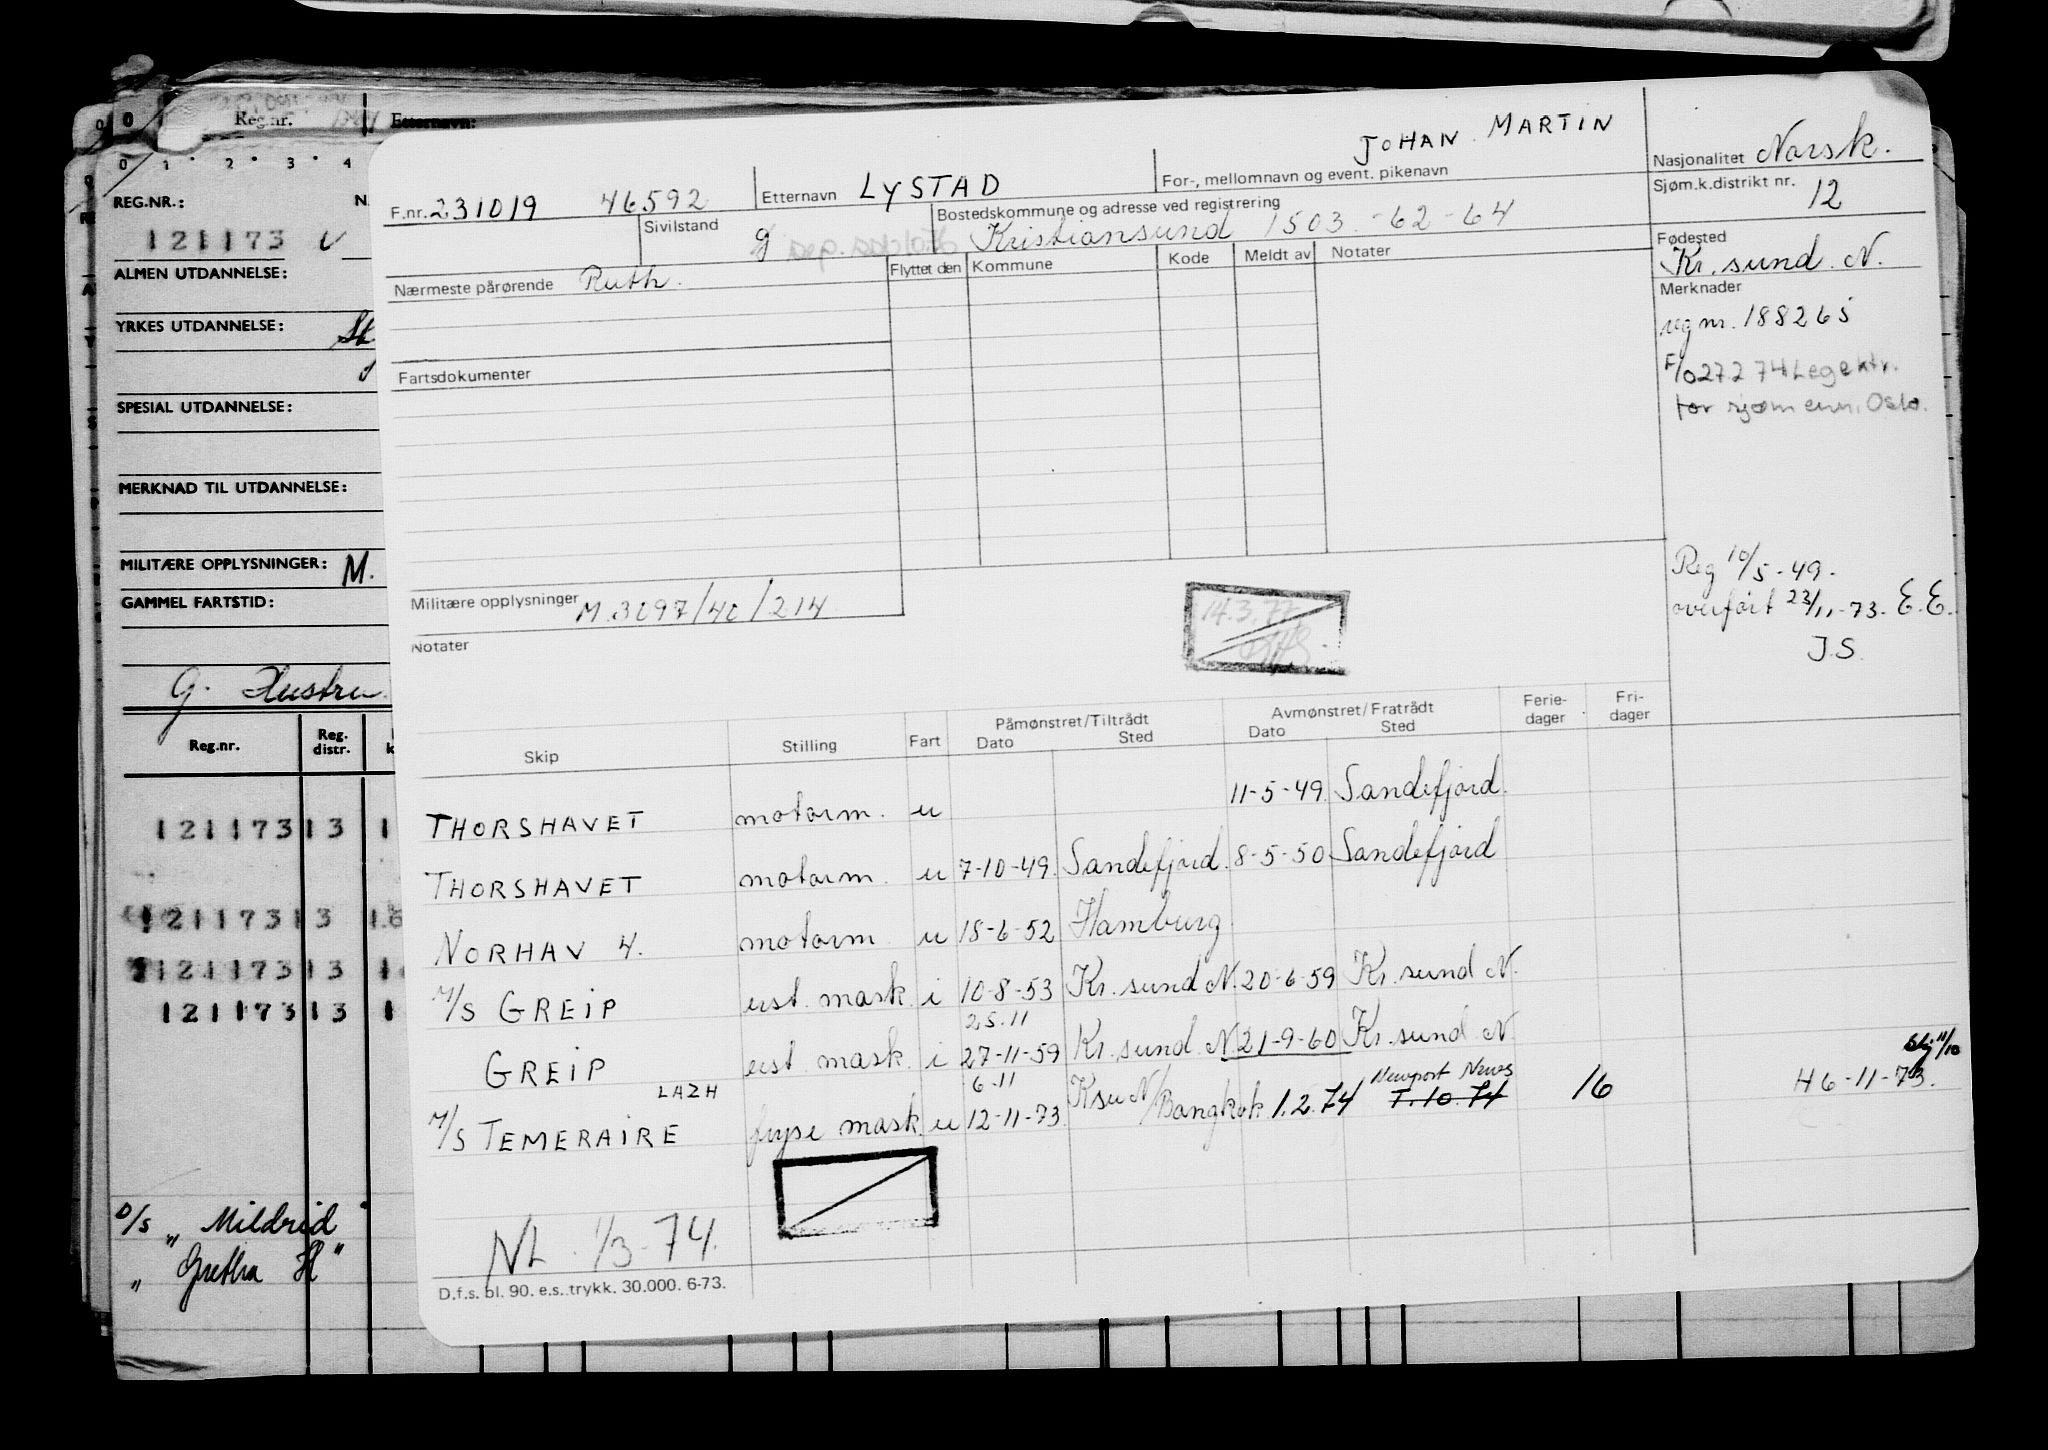 Reg.nr. Etternavn:
0 1 2 3 4
REG.NR.:
121173 v
ALMEN UTDANNELSE:
YRKES UTDANNELSE:
SPESIAL UTDANNELSE:
MERKNAD TIL UTDANNELSE:
MILITÆRE OPPLYSNINGER: M.
GAMMEL FARTSTID:
G. Hustru
Reg.nr. Reg. distr.
121173 13 1
121173 13 1.6
121173 13 1
121173 13 1
D/S „ Mildrid "
„ Gretha H"
F.nr. 231019 46592
Etternavn LYSTAD
JOHAN MARTIN
For-, mellomnavn og event. pikenavn
Nasjonalitet Norsk.
Sjøm.k.distrikt nr. 12
Sivilstand g
Bostedskommune og adresse ved registrering
Kristiansund 1503-62-64
Fødested
Kr. sund. N.
Nærmeste pårørende Ruth.
Flyttet den Kommune Kode Meldt av Notater
Merknader
reg nr. 188265
F/o 27 2 74 Legektr.
for sjømenn, Oslo.
Fartsdokumenter
Reg 10/5-49.
overført 23/11-73. E.E.
J.S.
Militære opplysninger M.3097/40/214
14.3.77
Notater
Skip Stilling Fart Påmønstret/Tiltrådt Dato Sted Avmønstret/Fratrådt Dato Sted Ferie-dager Fri-dager
THORSHAVET motorm. u 11-5-49. Sandefjord.
THORSHAVET motorm. u 7-10-49. Sandefjord. 8-5-50 Sandefjord
NORHAV 4. motorm u 18-6-52 Hamburg
M/S GREIP eist. mask. i 10-8-53 Kr. sund N. 20-6-59 Kr. sund N.
25.11
GREIP eist. mask. i 27-11-59 Kr. sund. N. 21-9-60 Kr. sund. N.
LAZH 6-11 Newport News
M/S TEMERAIRE fryse mask. u 12-11-73. Ksu N/Bangkok 1.2.74 T.10.74 16 H 6-11-73. 11/10
NL. 1/3-74.
D.f.s. bl. 90. e.s. trykk. 30.000. 6-73.